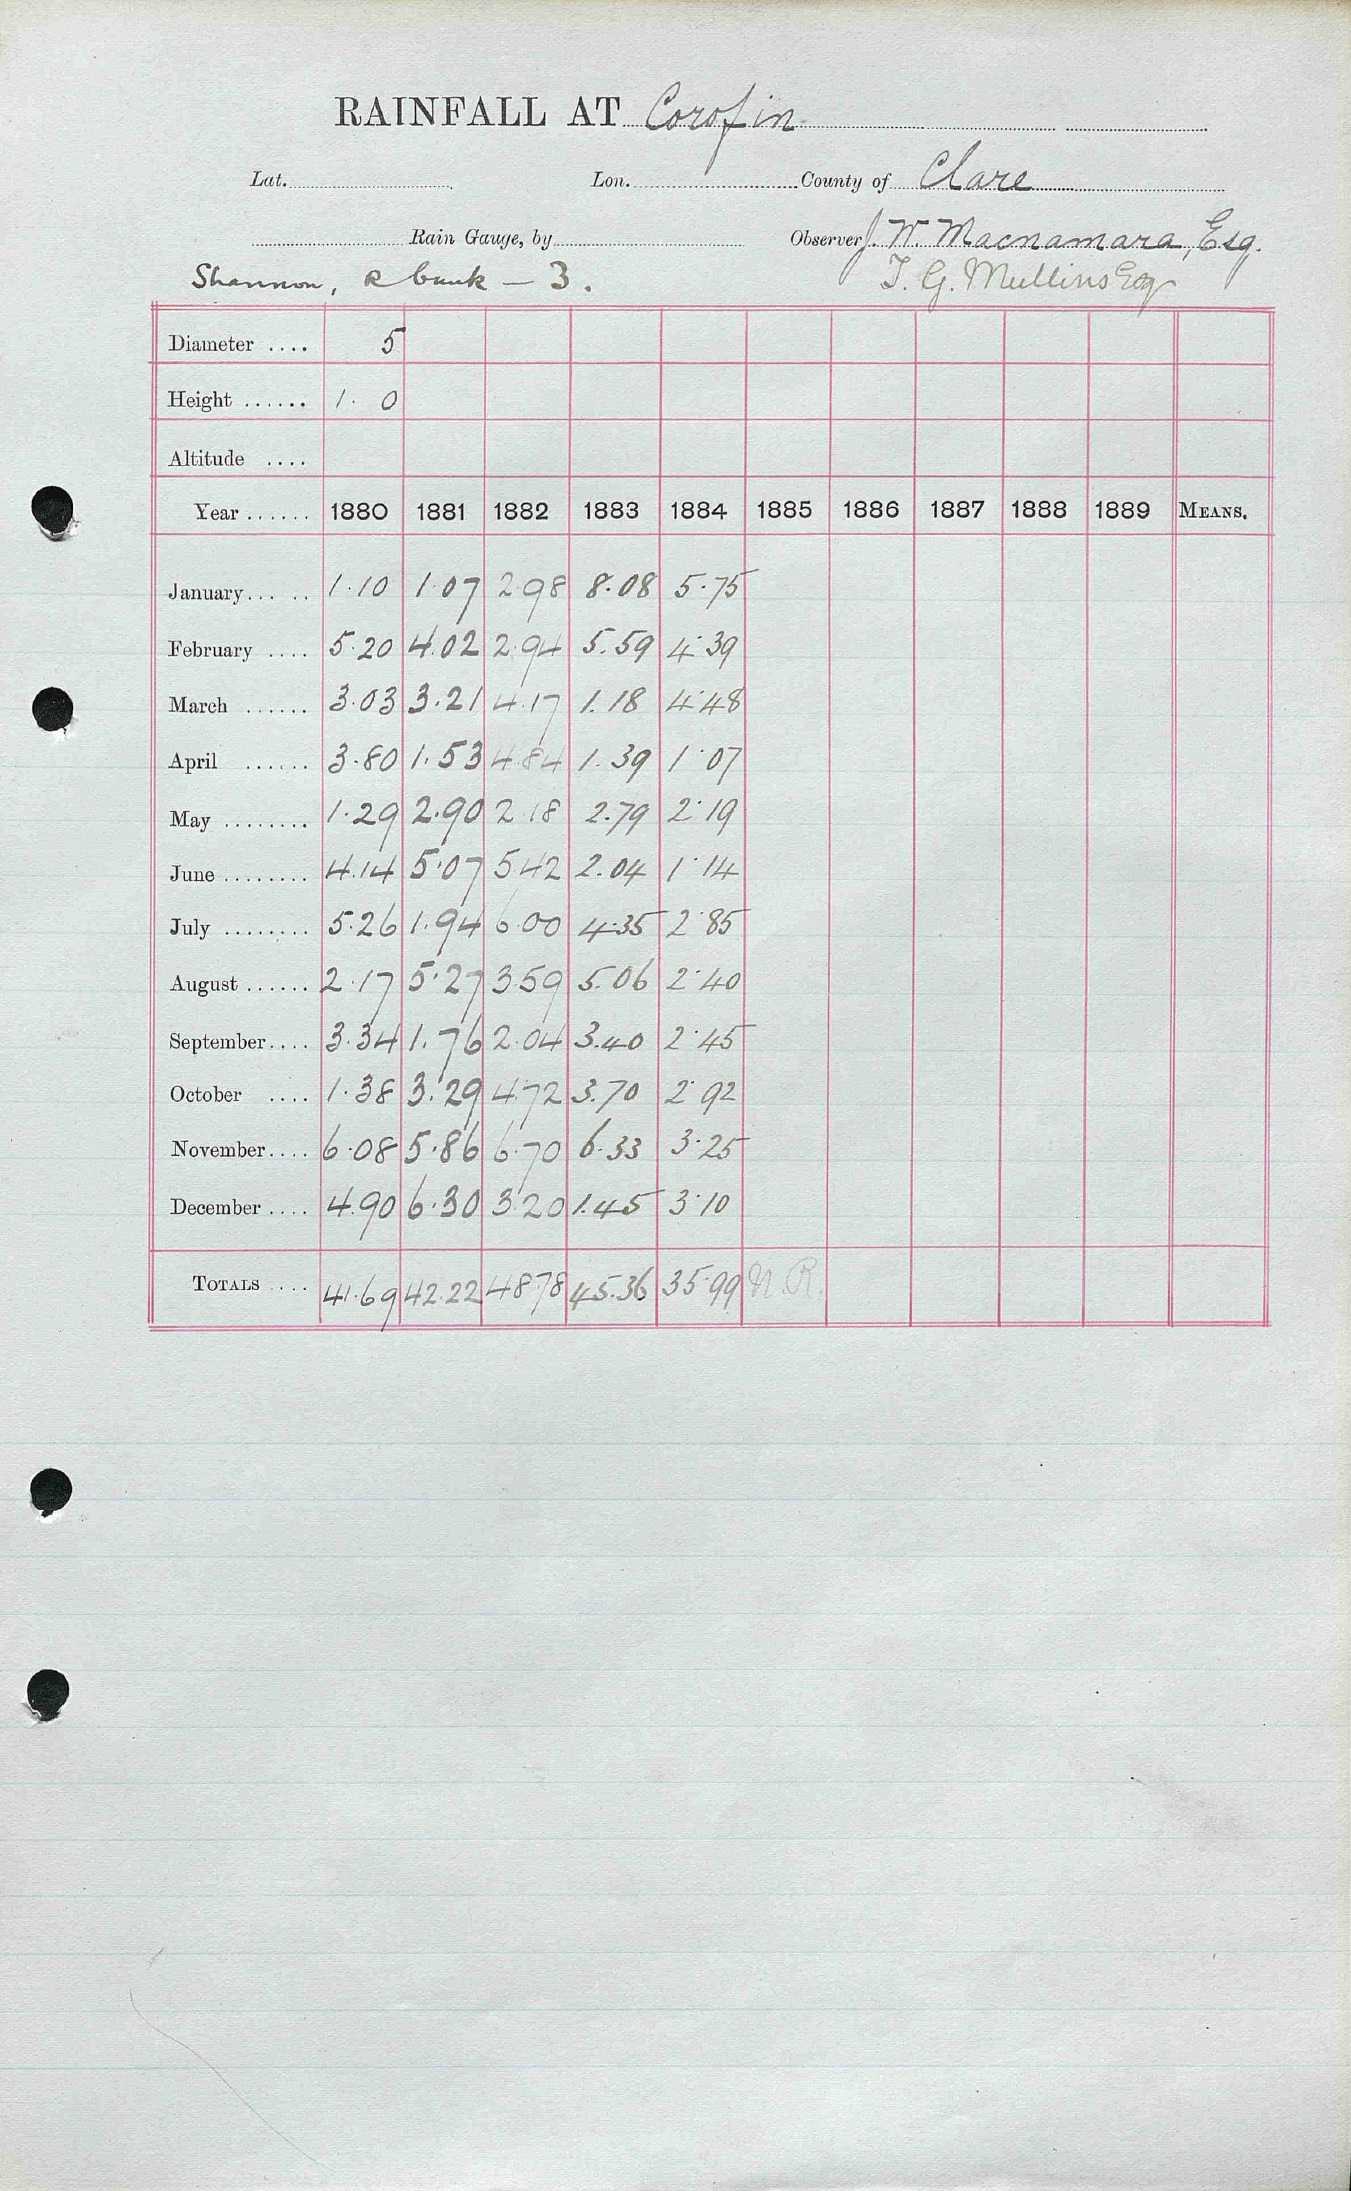 RAINFALL AT Corofin
Lat. Lon. County of Clare
Rain Gauge, by Observer J. W. Macnamara, Esq.
Shannon, R bank — 3. T. G. Mullins Esq
Diameter .... 5
Height ...... 1. 0
Altitude ....
Year ...... 1880 1881 1882 1883 1884 1885 1886 1887 1888 1889 MEANS.
January... .. 1.10 1.07 2.98 8.08 5.75
February .... 5.20 4.02 2.94 5.59 4.39
March ...... 3.03 3.21 4.17 1.18 4.48
April ...... 3.80 1.53 4.84 1.39 1.07
May ........ 1.29 2.90 2.18 2.79 2.19
June ........ 4.14 5.07 5.42 2.04 1.14
July ........ 5.26 1.94 6.00 4.35 2.85
August ...... 2.17 5.27 3.59 5.06 2.40
September.... 3.34 1.76 2.04 3.40 2.45
October .... 1.38 3.29 4.72 3.70 2.92
November.... 6.08 5.86 6.70 6.33 3.25
December .... 4.90 6.30 3.20 1.45 3.10
TOTALS .... 41.69 42.22 48.78 45.36 35.99 N.R.